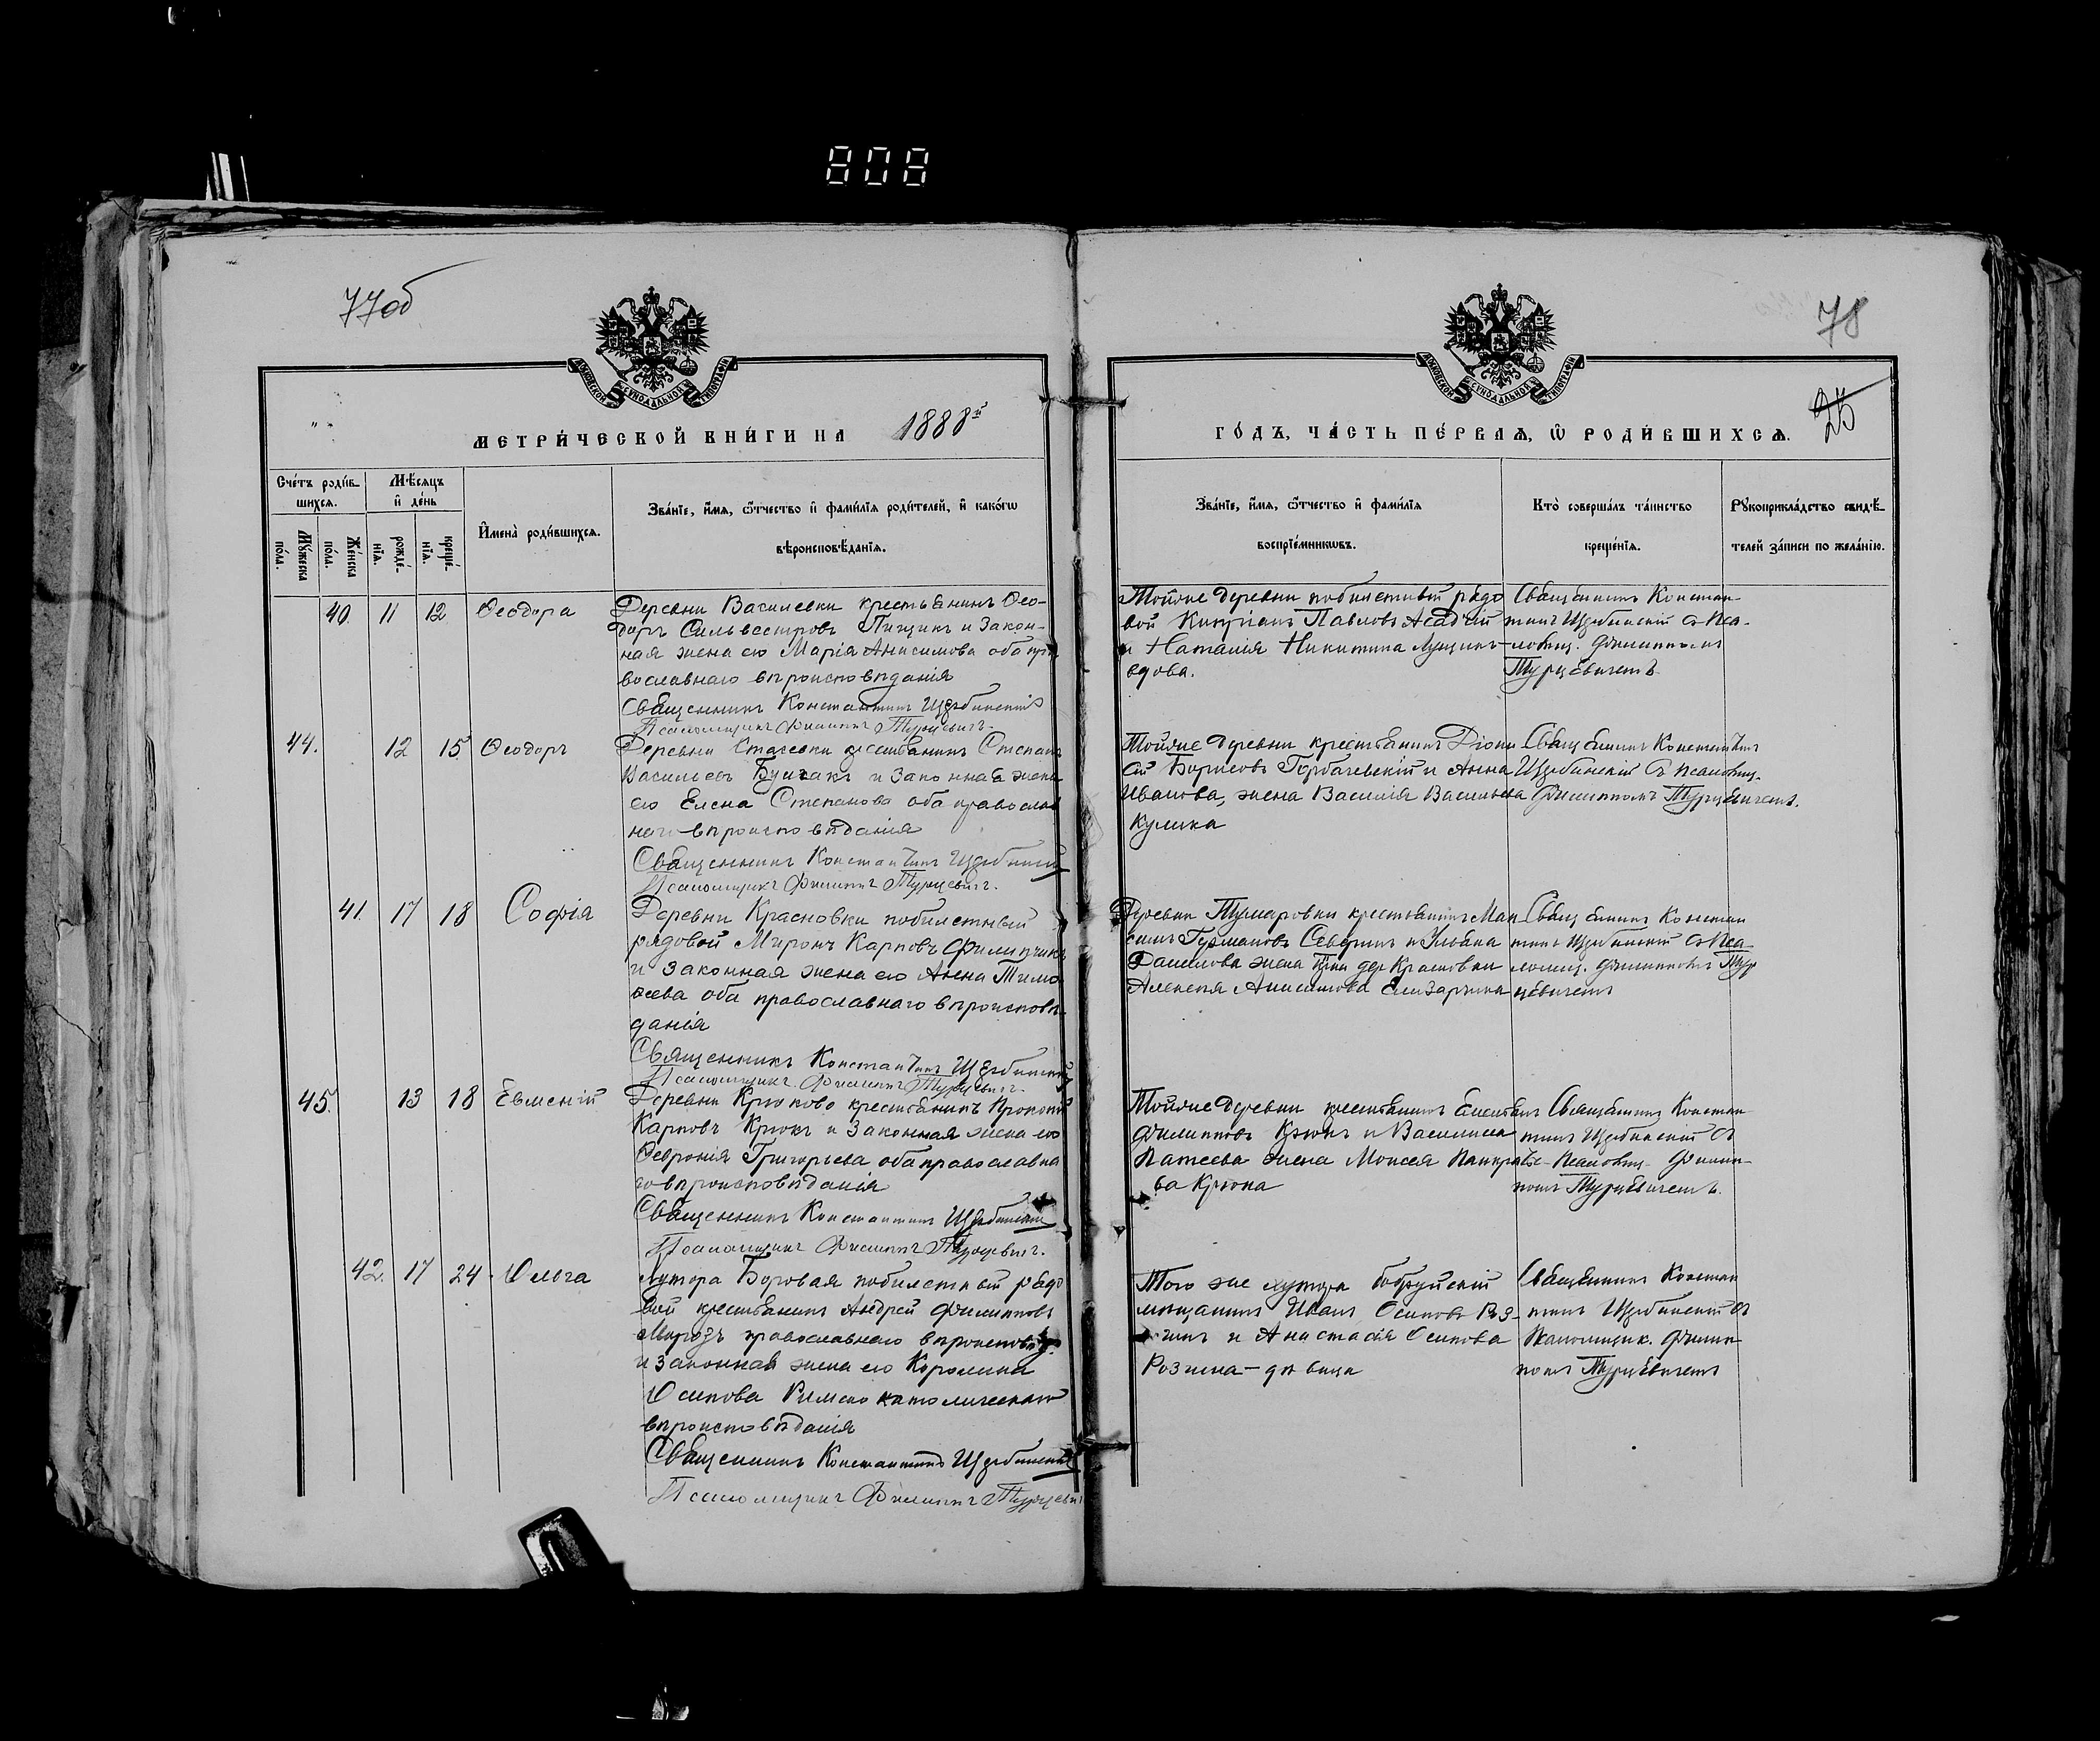 808
77об
78
25
МОСКОВСКОЙ СѴНОДАЛЬНОЙ ТИПОГРАФІИ
МОСКОВСКОЙ СѴНОДАЛЬНОЙ ТИПОГРАФІИ
МЕТРИ́ЧЕСКОЙ КНИ́ГИ НА 1888й
ГО́ДЪ, ЧА́СТЬ ПЕ́РВАѦ, Ѡ҆ РОДИ́ВШИХСѦ.
Сче́тъ роди́в-
шихся.
Мѣ́сяцъ
и҆ де́нь
Му́жеска
по́ла.
Же́нска
по́ла.
рожде́-
нїѧ.
креще́-
нїѧ.
И҆мена̀ роди́вшихсѧ.
Зва́нїе, и҆́мѧ, ѻ҆́тчество и҆ фами́лїѧ роди́телей, и҆ како́гѡ
вѣроисповѣ́данїѧ.
Зва́нїе, и҆́мѧ, ѻ҆́тчество и҆ фами́лїѧ
воспрїе́мникѡвъ.
Кто̀ соверша́лъ та́инство
креще́нїѧ.
Рꙋкоприкла́дство свидѣ́-
телей за́писи по жела́нїю.
40. 11 12 Ѳеодора
Деревни Василевки крестьянинъ Ѳео-
доръ Сильвестровъ Пищикъ и закон-
ная жена его Марія Анисимова оба пра
вославнаго вѣроисповѣданія
Священникъ Константинъ Щербинскій
Псаломщикъ Филиппъ Турцевичъ.
Тойже деревни побилетный рядо
вой Кипріанъ Павловъ
и Наталія Никитина
вдова.
Священникъ Констан-
тинъ Щербинскій съ Пса-
ломщ. Филиппомъ
Турцевичемъ
44. 12 15 Ѳеодоръ
Деревни Стасевки крестьянинъ Степанъ
Васильевъ и законная жена
его Елена Степанова оба православ
наго вѣроисповѣданія
Священникъ Константинъ Щербинскій
Псаломщикъ Филиппъ Турцевичъ.
Тойже деревни крестьянинъ Діони
сій Борисовъ Горбачевскій и Анна
Иванова, жена Василія Васильева
Кулика
Священникъ Константинъ
Щербинскій съ псаломщ.
Филиппомъ Турцевичемъ.
41. 17 18 Софія
Деревни Красновки побилетный
рядовой Миронъ Карповъ Филипчикъ
и законная жена его Анна Тимо
ѳеева оба православнаго вѣроисповѣ-
данія
Священникъ Константинъ Щербинскій
Псаломщикъ Филиппъ Турцевичъ.
Деревни крестьянинъ Мак
симъ Германовъ и Ульяна
Данилова жена кр-на дер Красновки
Алексѣя Анисимова
Священникъ Констан
тинъ Щербинскій съ Пса-
ломщ. Филиппомъ Тур
цевичемъ
45. 13 18 Евменій
Деревни Крюково крестьянинъ Прокопій
Карповъ Крюкъ и законная жена его
Ѳевронія Григорьева оба православна
го вѣроисповѣданія
Священникъ Константинъ Щербинскій
Псаломщикъ Филиппъ Турцевичъ.
Тойже деревни крестьянинъ
Филипповъ Крюкъ и Василиса
жена Моисея Панкрать-
ва Крюка
Священникъ Констан
тинъ Щербинскій съ
Псаломщ. Филип-
помъ Турцевичемъ.
42. 17 24 Ольга
Хутора Боровая побилетный рядо
вой крестьянинъ Андрей Филипповъ
Морозъ православнаго вѣроисповѣд.
и законная жена его Каролина
Осипова Римско католическаго
вѣроисповѣданія
Священникъ Константинъ Щербинскій
Псаломщикъ Филиппъ Турцевич
Того же хутора бобруйскій
мѣщанинъ Иванъ Осиповъ
и Анастасія Осипова
дѣвица
Священникъ Констан
тинъ Щербинскій съ
Псаломщик. Филип
помъ Турцевичемъ